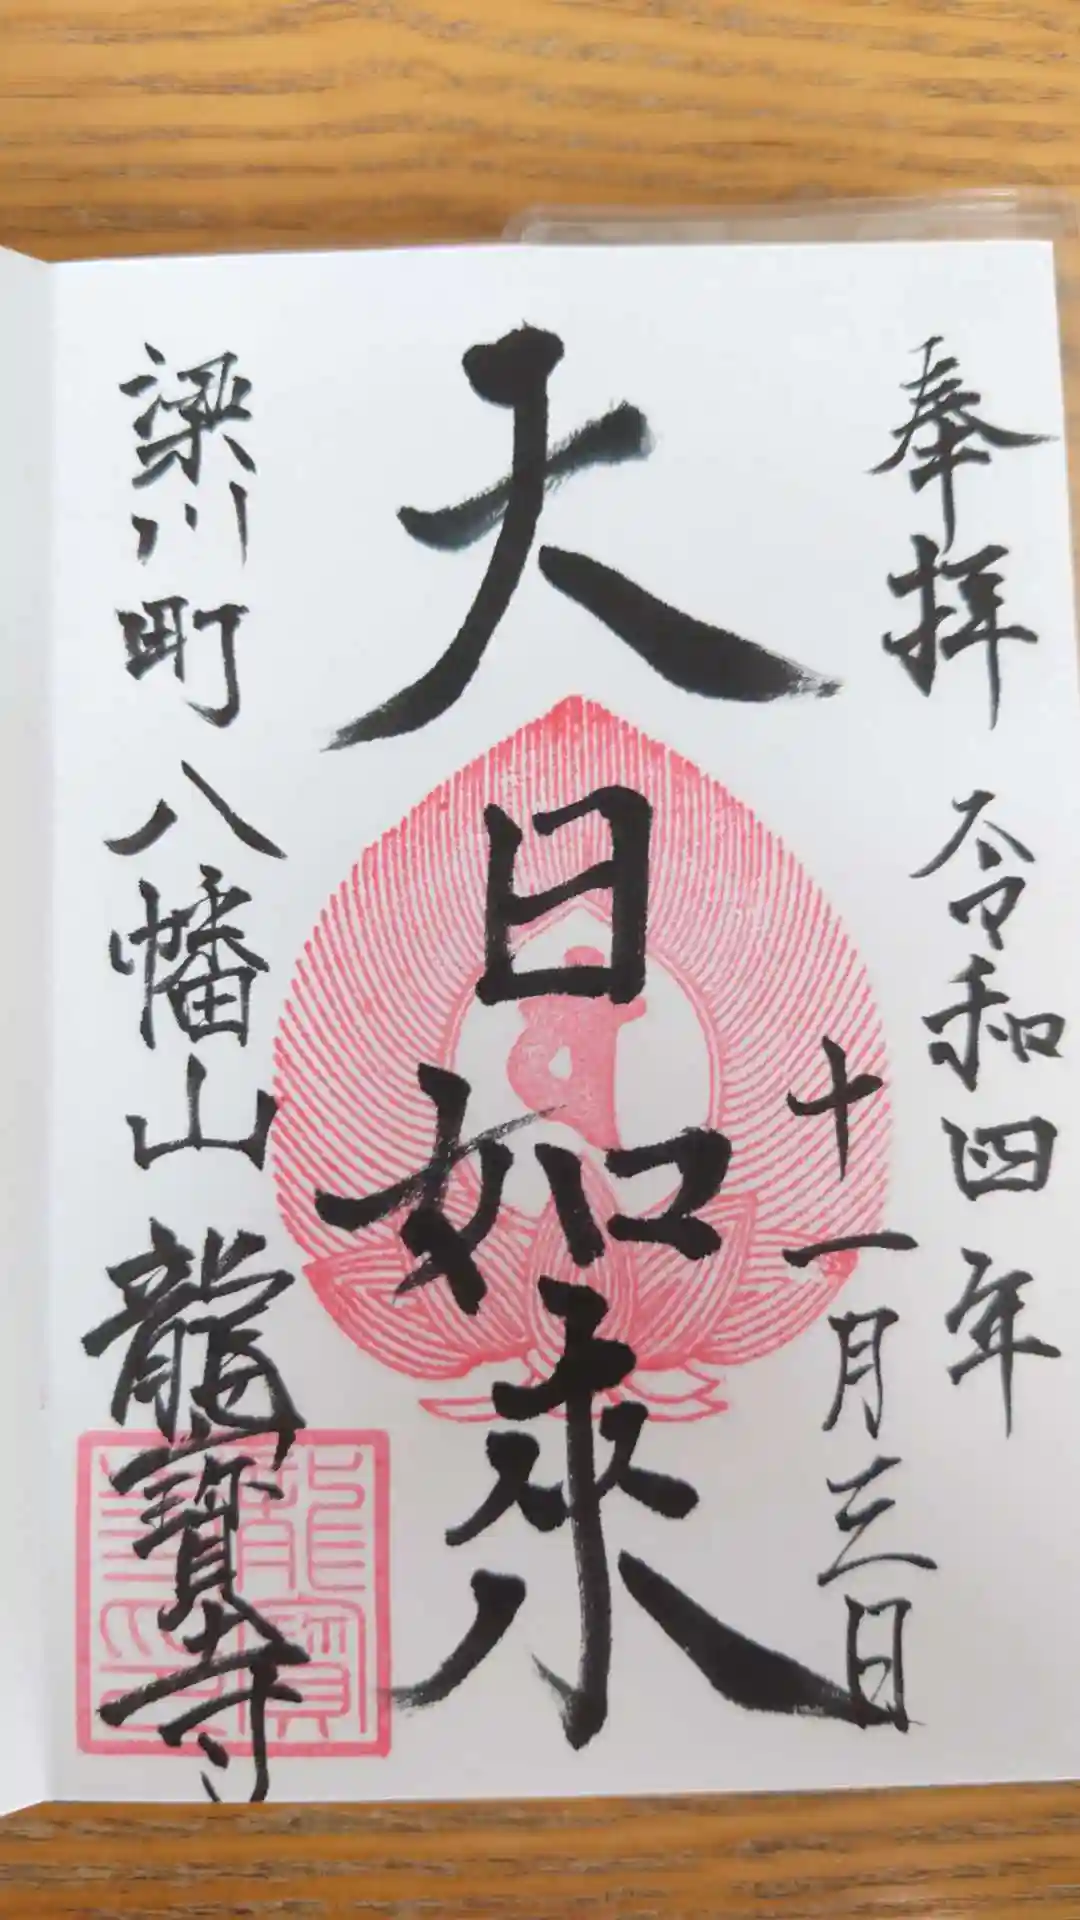 奉拝 令和四年
十一月三日
大日如來
梁川町 八幡山 龍寶寺
龍寶